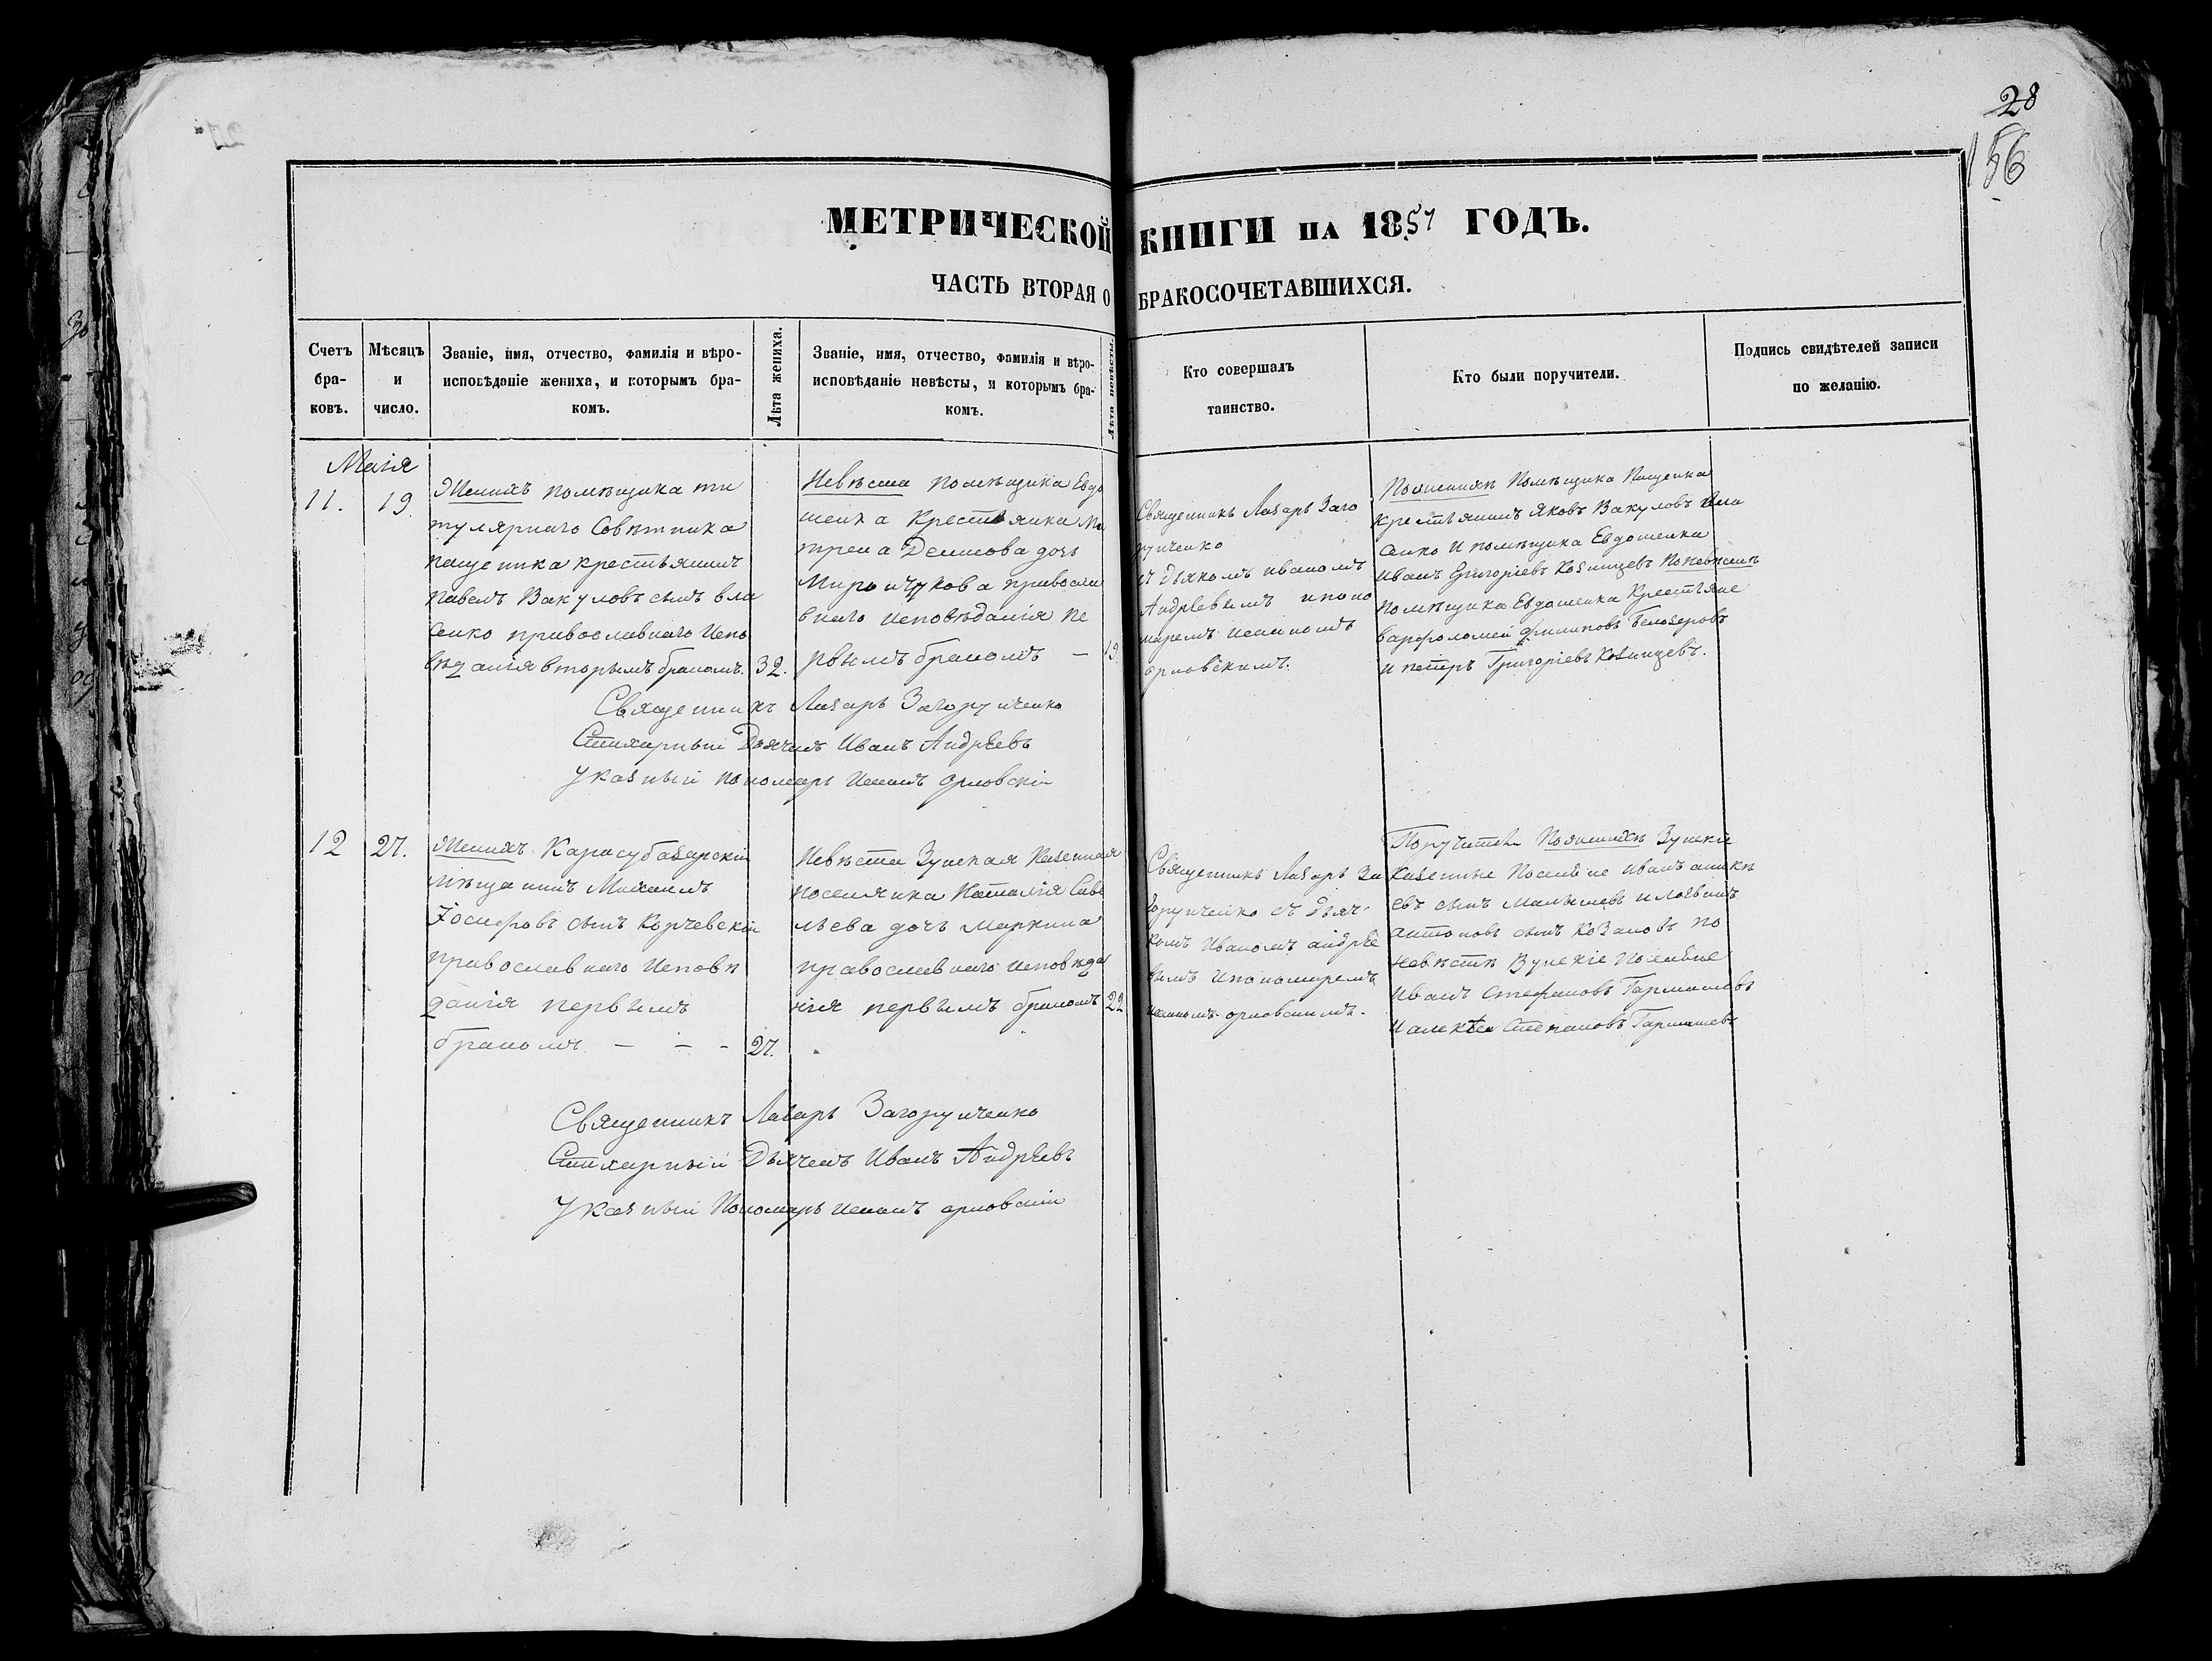 28
156
МЕТРИЧЕСКОЙ КНИГИ НА 1857 ГОДЪ.
ЧАСТЬ ВТОРАЯ О БРАКОСОЧЕТАВШИХСЯ.
Счетъ
бра-
ковъ.
Мѣсяцъ
и
число.
Званіе, имя, отчество, фамилія и вѣро-
исповѣданіе жениха, и которымъ бра-
комъ.
Лѣта жениха.
Званіе, имя, отчество, фамилія и вѣро-
исповѣданіе невѣсты, и которымъ бра-
комъ.
Лѣта невѣсты.
Кто совершалъ
таинство.
Кто были поручители.
Подпись свидѣтелей записи
по желанію.
Маія
11.
19
Женихъ помѣщика ти
тулярнаго Совѣтника
пащенка крестьянинъ
павелъ Вакуловъ сынъ вла
сенко православнаго Испо
вѣданія вторымъ бракомъ.
32.
Невѣста помѣщика Евдо
шенка крестьянка Ма
трена Денисова дочь
Мирончукова правосла
внаго исповѣданія пе
рвымъ бракомъ —
19.
Священникъ Лазарь Заго
руиченко
съ дьякомъ иваномъ
Андрѣевымъ и поно
маремъ
орловскимъ.
По женихѣ Помѣщика Пащенка
крестьянинъ Яковъ Вакуловъ Вла
сенко и помѣщика Евдошенка
иванъ Григоріевъ Козинцевъ По невѣстѣ
помѣщика Евдошенка Крестьяне
варфоломей филиповъ Белозеровъ
и петеръ Григоріевъ Козинцевъ.
Священникъ Лазарь Загоруиченко
Стихарный Дьячекъ Иванъ Андрѣевъ
Указный пономарь орловскій
12
27.
Женихъ Карасубазарскій
мѣщанинъ Михаилъ
Іосифовъ сынъ Корчевскій
православнаго Исповѣ
данія первымъ
бракомъ — — -
27.
Невѣста Зуйская Казенная
поселянка Наталія Саве
льева дочь маркина
православнаго исповѣда
нія первымъ бракомъ
22
Священникъ Лазарь За
горуиченко съ дьяч-
комъ Иваномъ андрѣе
вымъ и пономаремъ
орловскимъ.
Поручители По женихѣ Зуйскіе
казенные Поселяне иванъ аники
евъ сынъ малышевъ и логвинъ
антоновъ сынъ козаковъ по
невѣстѣ Зуйскіе поселяне
иванъ стефановъ Гармашовъ
и алексѣи степановъ Гармашевъ
Священникъ Лазарь Загоруиченко
Стихарный Дьячекъ Иванъ Андрѣевъ
Указный Пономарь орловскій